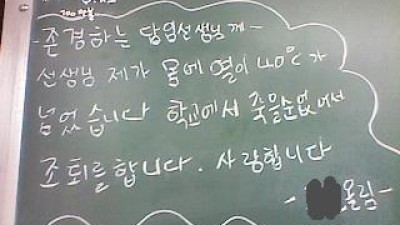 -존경하는 담임선생님께-
선생님 제가 몸에 열이 40°C가
넘었습니다 학교에서 죽을순없어서
조퇴를합니다. 사랑합니다
올림-